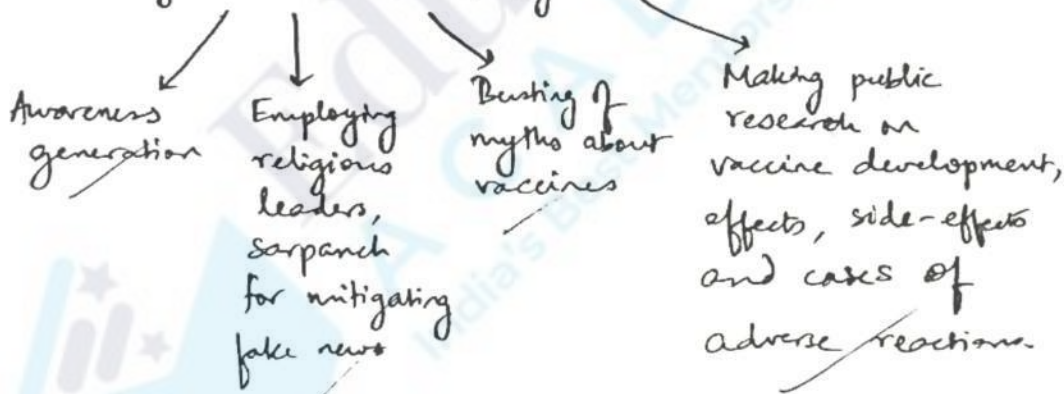 Awareness
generation
Employing
religious
leaders,
sarpanch
for mitigating
fake news
Busting of
myths about
vaccines
Making public
research on
vaccine development,
effects, side-effects
and cases of
adverse reactions.
Edu
ACA
India's Best Mentors